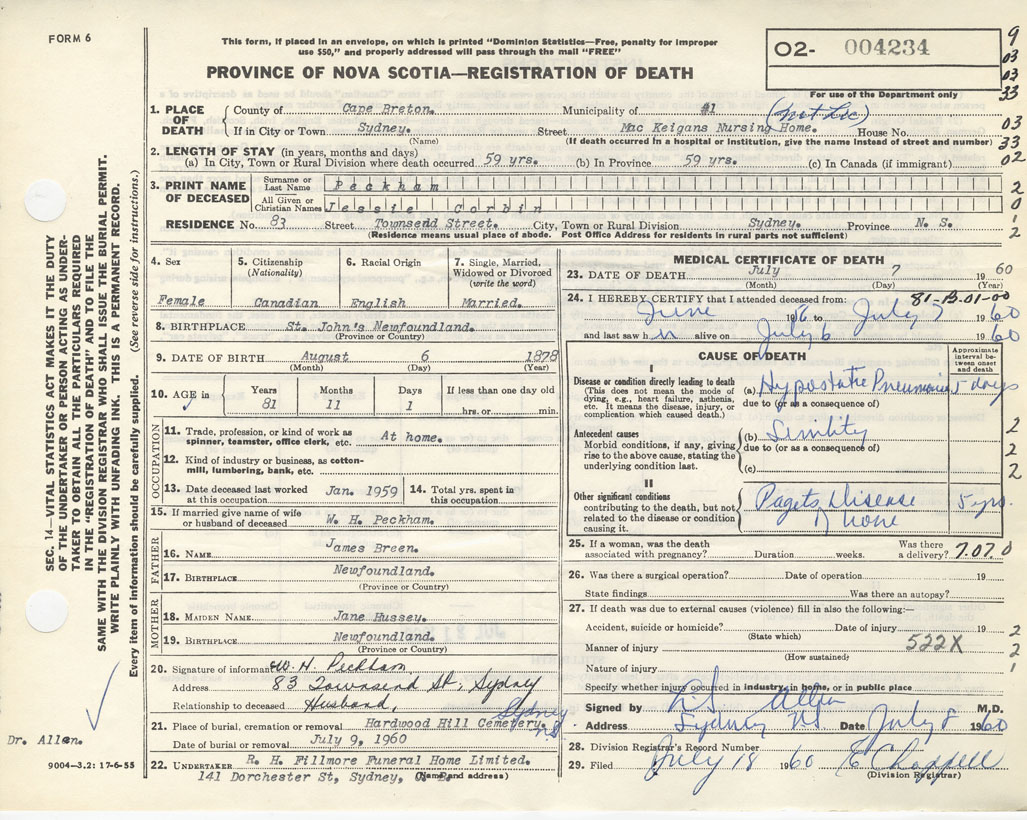 FORM 6
This form, if placed in an envelope, on which is printed "Dominion Statistics—Free, penalty for improper
use $50," and properly addressed will pass through the mail "FREE"
O2- 004234
9
03
03
33
PROVINCE OF NOVA SCOTIA—REGISTRATION OF DEATH
For use of the Department only
1. PLACE OF DEATH
County of Cape Breton. Municipality of #1 (not Inc)
If in City or Town Sydney. Street Mac Keigans Nursing Home. House No. 03
(Name) (If death occurred in a hospital or Institution, give the name instead of street and number) 33
2. LENGTH OF STAY (in years, months and days)
(a) In City, Town or Rural Division where death occurred 59 yrs. (b) In Province 59 yrs. (c) In Canada (if immigrant) 02
3. PRINT NAME OF DECEASED
Surname or Last Name Peckham 2
All Given or Christian Names Jessie Corbin 0
RESIDENCE No. 83 Street Townsend Street. City, Town or Rural Division Sydney. Province N. S. 1
(Residence means usual place of abode. Post Office Address for residents in rural parts not sufficient) 2
4. Sex
Female
5. Citizenship
(Nationality)
Canadian
6. Racial Origin
English
7. Single, Married,
Widowed or Divorced
(write the word)
Married.
8. BIRTHPLACE St. John's Newfoundland.
(Province or Country)
9. DATE OF BIRTH August 6 1878
(Month) (Day) (Year)
10. AGE in
Years 81
Months 11
Days 1
If less than one day old
hrs. or min.
OCCUPATION
11. Trade, profession, or kind of work as
spinner, teamster, office clerk, etc. At home.
12. Kind of industry or business, as cotton-
mill, lumbering, bank, etc.
13. Date deceased last worked
at this occupation Jan. 1959
14. Total yrs. spent in
this occupation
15. If married give name of wife
or husband of deceased W. H. Peckham.
FATHER
16. NAME James Breen.
17. BIRTHPLACE Newfoundland.
(Province or Country)
MOTHER
18. MAIDEN NAME Jane Hussey.
19. BIRTHPLACE Newfoundland.
(Province or Country)
20. Signature of informant W. H. Peckham
Address 83 Townsend St, Sydney
Relationship to deceased Husband,
21. Place of burial, cremation or removal Hardwood Hill Cemetery. Sydney NS
Date of burial or removal July 9, 1960
22. UNDERTAKER R. H. Fillmore Funeral Home Limited.
141 Dorchester St, Sydney,
(Name and address)
MEDICAL CERTIFICATE OF DEATH
23. DATE OF DEATH July 7 1960
(Month) (Day) (Year)
24. I HEREBY CERTIFY that I attended deceased from: 81-B-01-00
June 196 to July 7 1960
and last saw her alive on July 6 1960
CAUSE OF DEATH
Approximate
interval be-
tween onset
and death
I
Disease or condition directly leading to death
(This does not mean the mode of
dying, e.g., heart failure, asthenia,
etc. It means the disease, injury, or
complication which caused death.)
(a) Hypostatic Pneumonia 5 days
due to (or as a consequence of)
Antecedent causes
Morbid conditions, if any, giving
rise to the above cause, stating the
underlying condition last.
(b) Senility
due to (or as a consequence of)
(c)
2
2
2
II
Other significant conditions
contributing to the death, but not
related to the disease or condition
causing it.
Pagets Disease
of bone
5 yrs.
25. If a woman, was the death
associated with pregnancy? Duration weeks.
Was there
a delivery? 7.07.0
26. Was there a surgical operation? Date of operation 19
State findings Was there an autopsy?
27. If death was due to external causes (violence) fill in also the following:—
Accident, suicide or homicide? Date of injury 19 2
(State which)
Manner of injury 522X 2
(How sustained)
Nature of injury 1
Specify whether injury occurred in industry, in home, or in public place
Signed by Allen M.D.
Address Sydney NS Date July 8 1960
28. Division Registrar's Record Number
29. Filed July 18 1960 E Chappell
(Division Registrar)
SEC. 14—VITAL STATISTICS ACT MAKES IT THE DUTY
OF THE UNDERTAKER OR PERSON ACTING AS UNDER-
TAKER TO OBTAIN ALL THE PARTICULARS REQUIRED
IN THE "REGISTRATION OF DEATH" AND TO FILE THE
SAME WITH THE DIVISION REGISTRAR WHO SHALL ISSUE THE BURIAL PERMIT.
WRITE PLAINLY WITH UNFADING INK. THIS IS A PERMANENT RECORD.
Every item of information should be carefully supplied. (See reverse side for instructions.)
Dr. Allen.
9004—3.2: 17-6-55